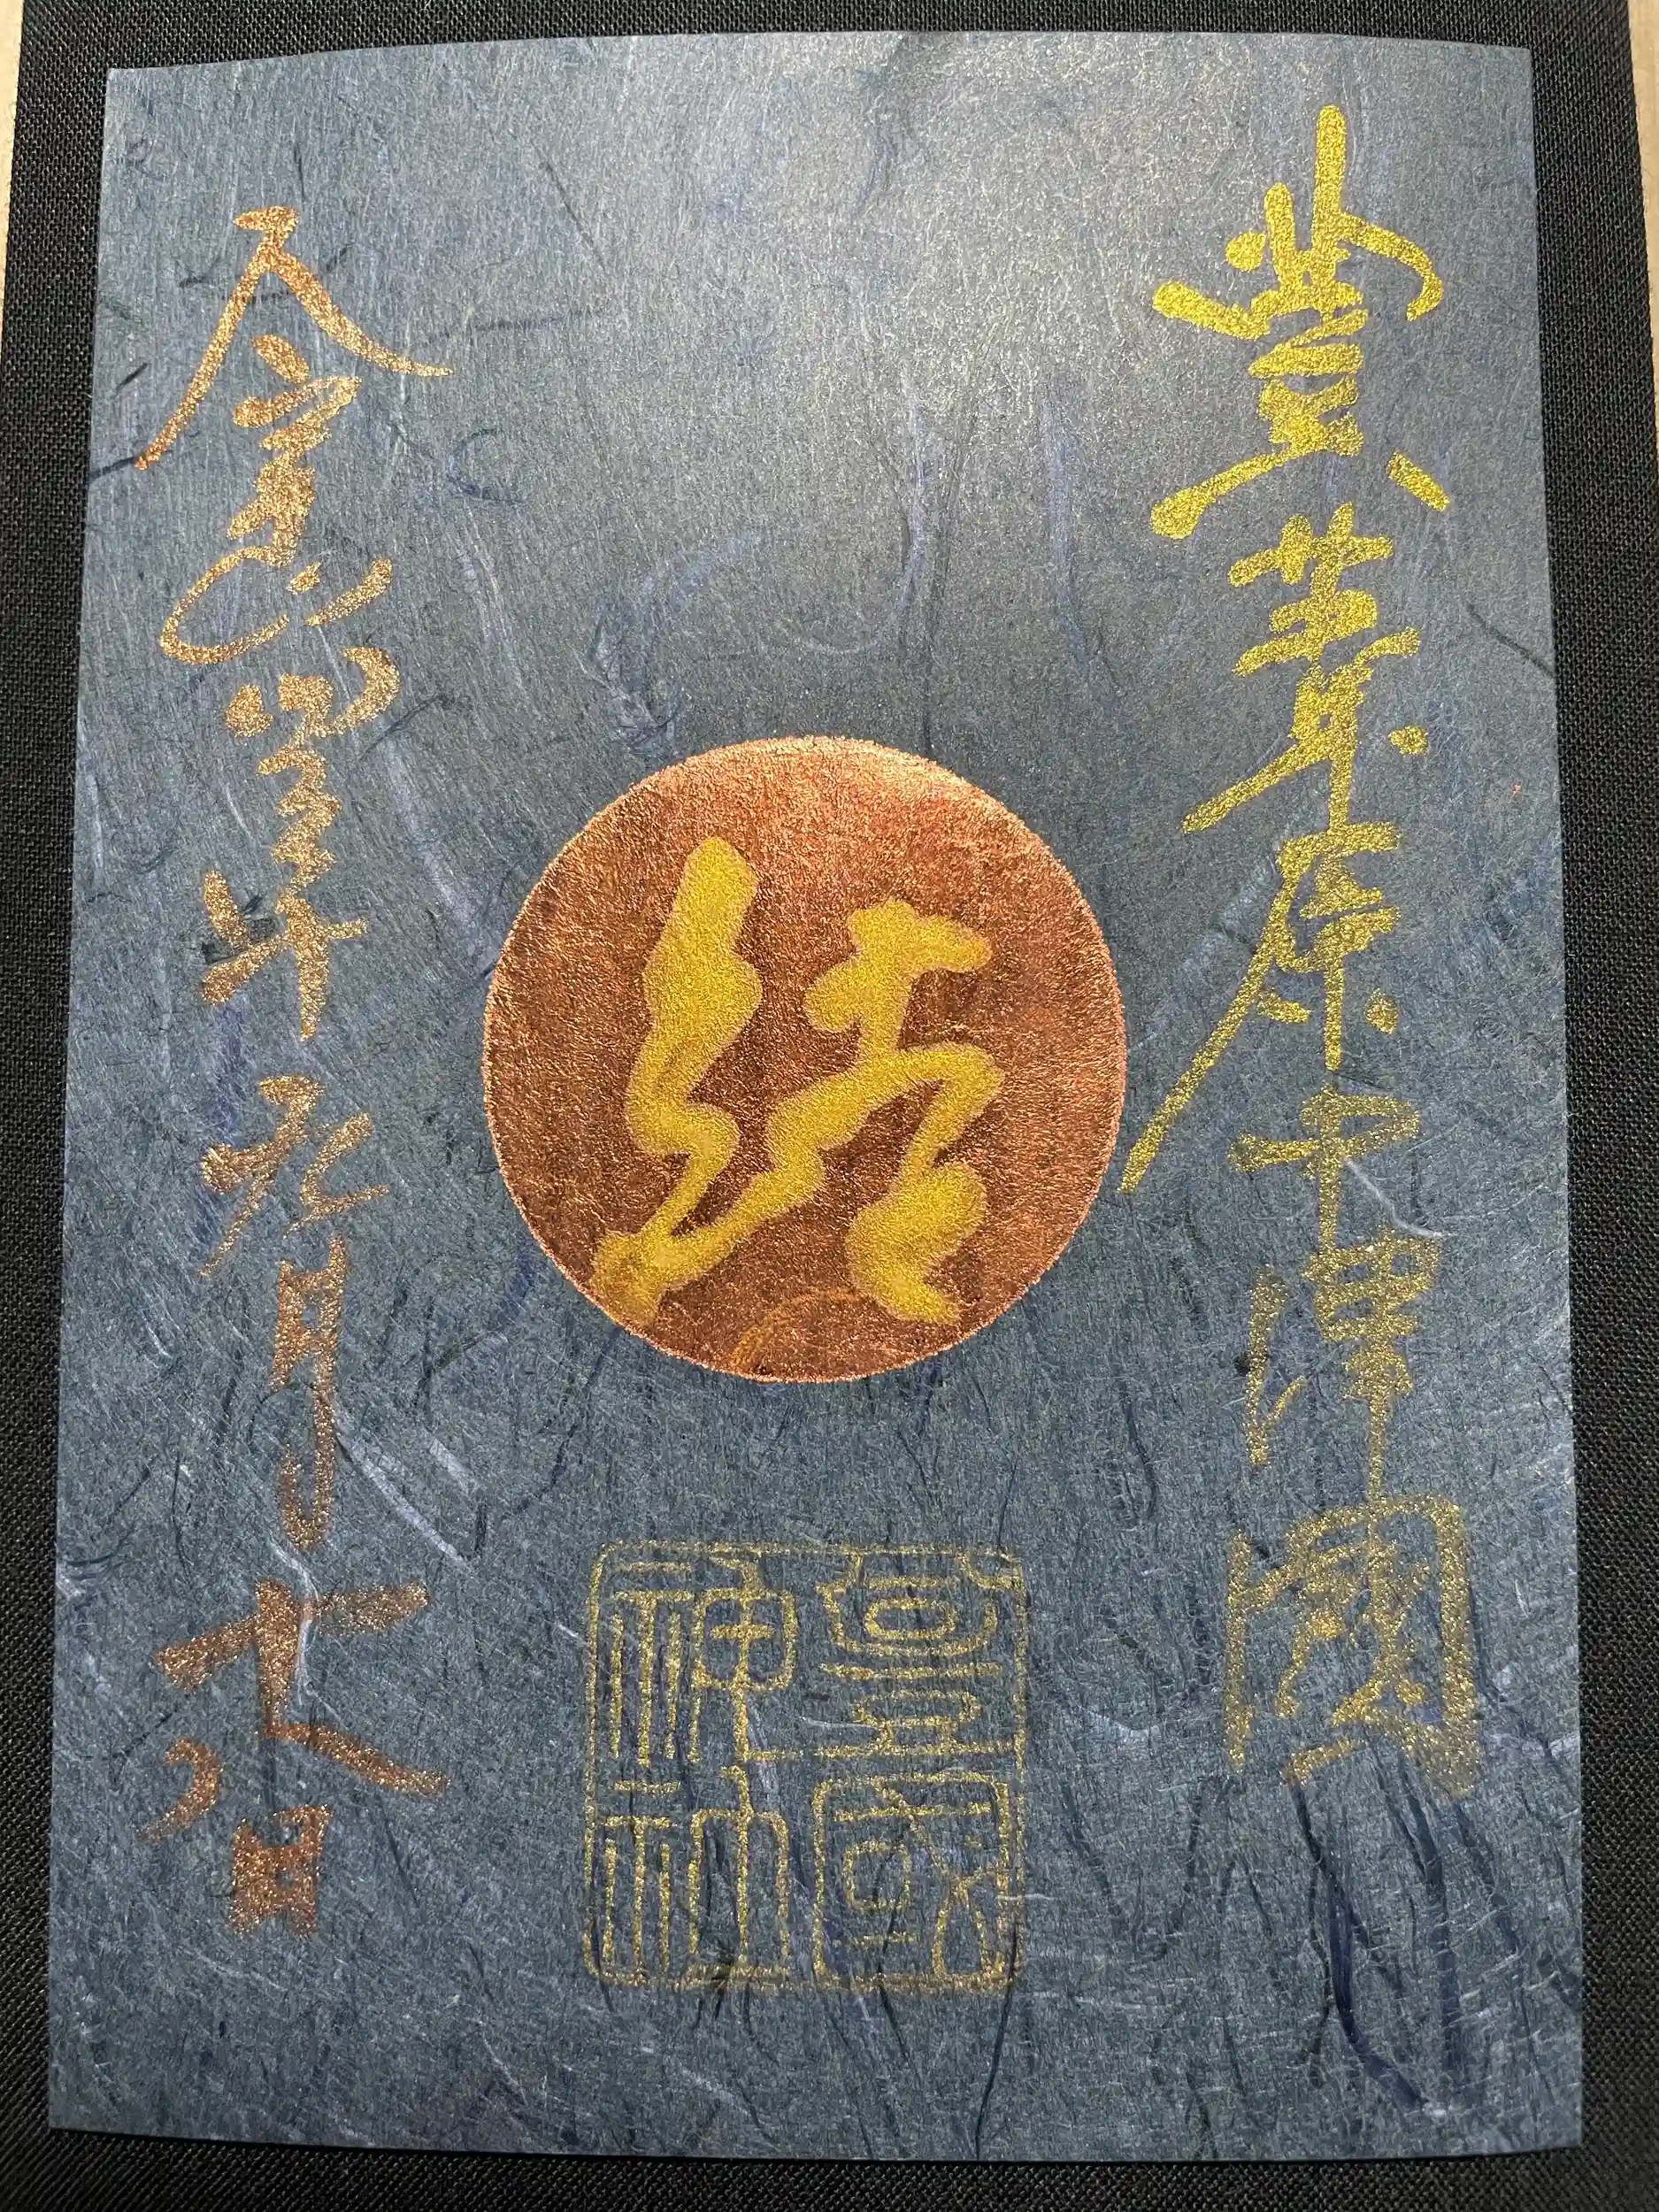 豊葦原中津國
結
豊國
神社
令和四年九月十八日